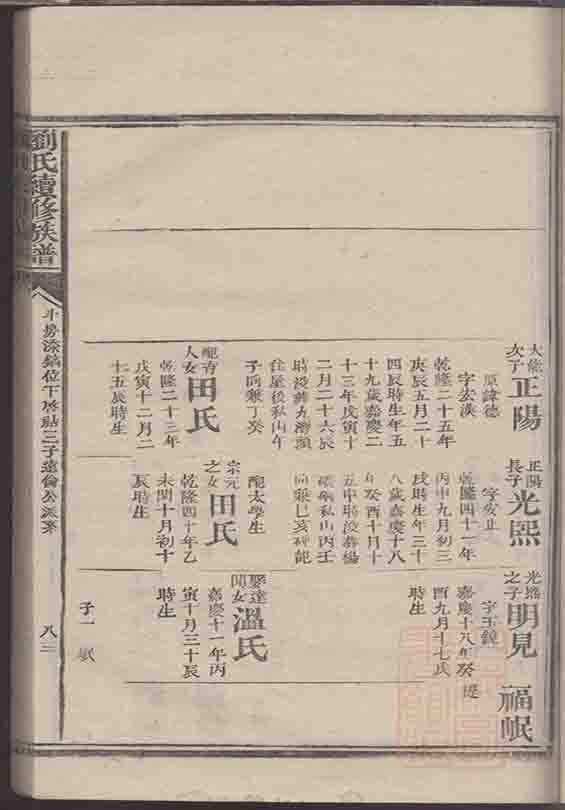 大巖次子
正陽
原諱德
字宏漢
乾隆二十五年
庚辰五月二十
四辰時生年五
十九歲嘉慶二
十三年戊寅十
二月二十六辰
時歿葬九灣頭
住屋後私山午
子向兼丁癸
配有
人女
田氏
乾隆二十三年
戊寅十二月二
十五辰時生
正陽長子
光熙
字安止
乾隆四十一年
丙申九月初三
戌時生年三十
八歲嘉慶十八
年癸酉十月十
五申時歿葬楊
私山丙壬
向兼巳亥
配太學生
宗元之女
田氏
乾隆四十年乙
未閏十月初十
辰時生
光熙之子
明見
字玉鏡
嘉慶十八年癸
酉九月十七戌
時生
聚達閏女
溫氏
嘉慶十一年丙
寅十月三十辰
時生
子一
福岷
劉氏續修族譜
位下啓點三子遠倫公派系
八三